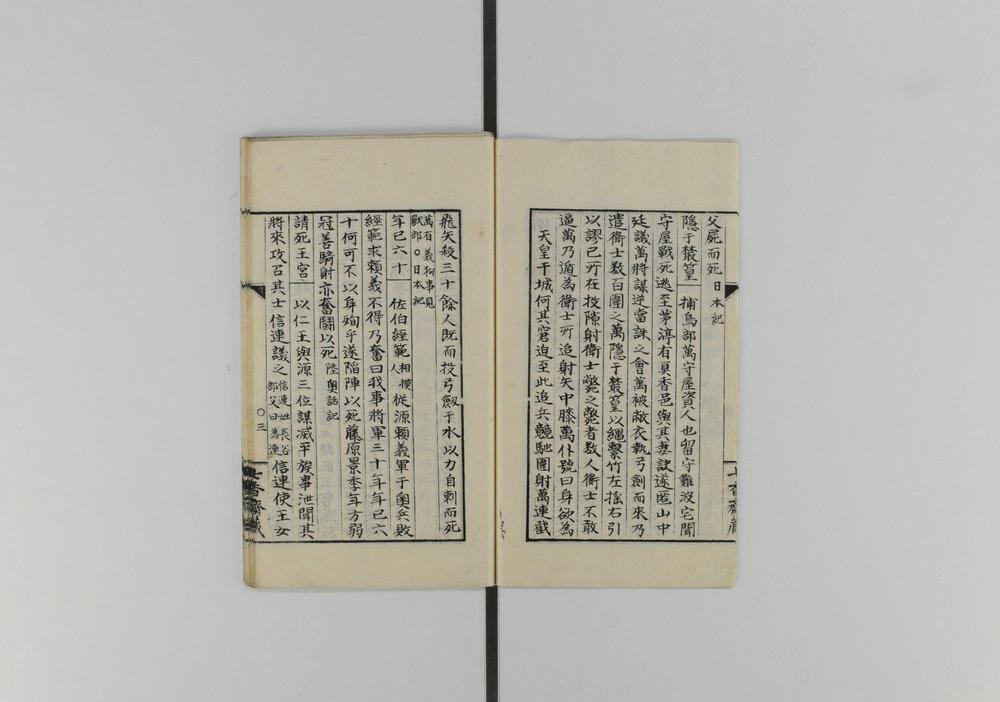 父屍而死日本紀
隱于叢篁 捕鳥部萬守屋資人也留守難波宅聞
守屋戰死逃至茅渟有真香邑與其妻訣遂匿山中
廷議萬將謀逆當誅之會萬被敝衣執弓劍而來乃
遣衛士數百圍之萬隱于叢篁以繩繫竹左搖右引
以謬己所在投隙射衛士斃之斃者數人衛士不敢
逼萬乃遁為衛士所追射矢中膝萬仆號曰身欲為
天皇干城何其窘迫至此追兵競馳圍射萬連截
飛矢殺三十餘人既而投弓劔于水以力自刺而死
萬有義狗事見
獸部〇日本紀
年已六十 佐伯經範相模人從源賴義軍于奧兵敗
經範求賴義不得乃奮曰我事將軍三十年年已六
十何可不以身殉乎遂陷陣以死藤原景季年方弱
冠善騎射亦奮鬪以死陸奧話記
請死王宮 以仁王與源三位謀滅平族事泄聞其
將來攻召其士信連議之信連姓長谷部父曰為連信連使王女
〇三
七香齋藏